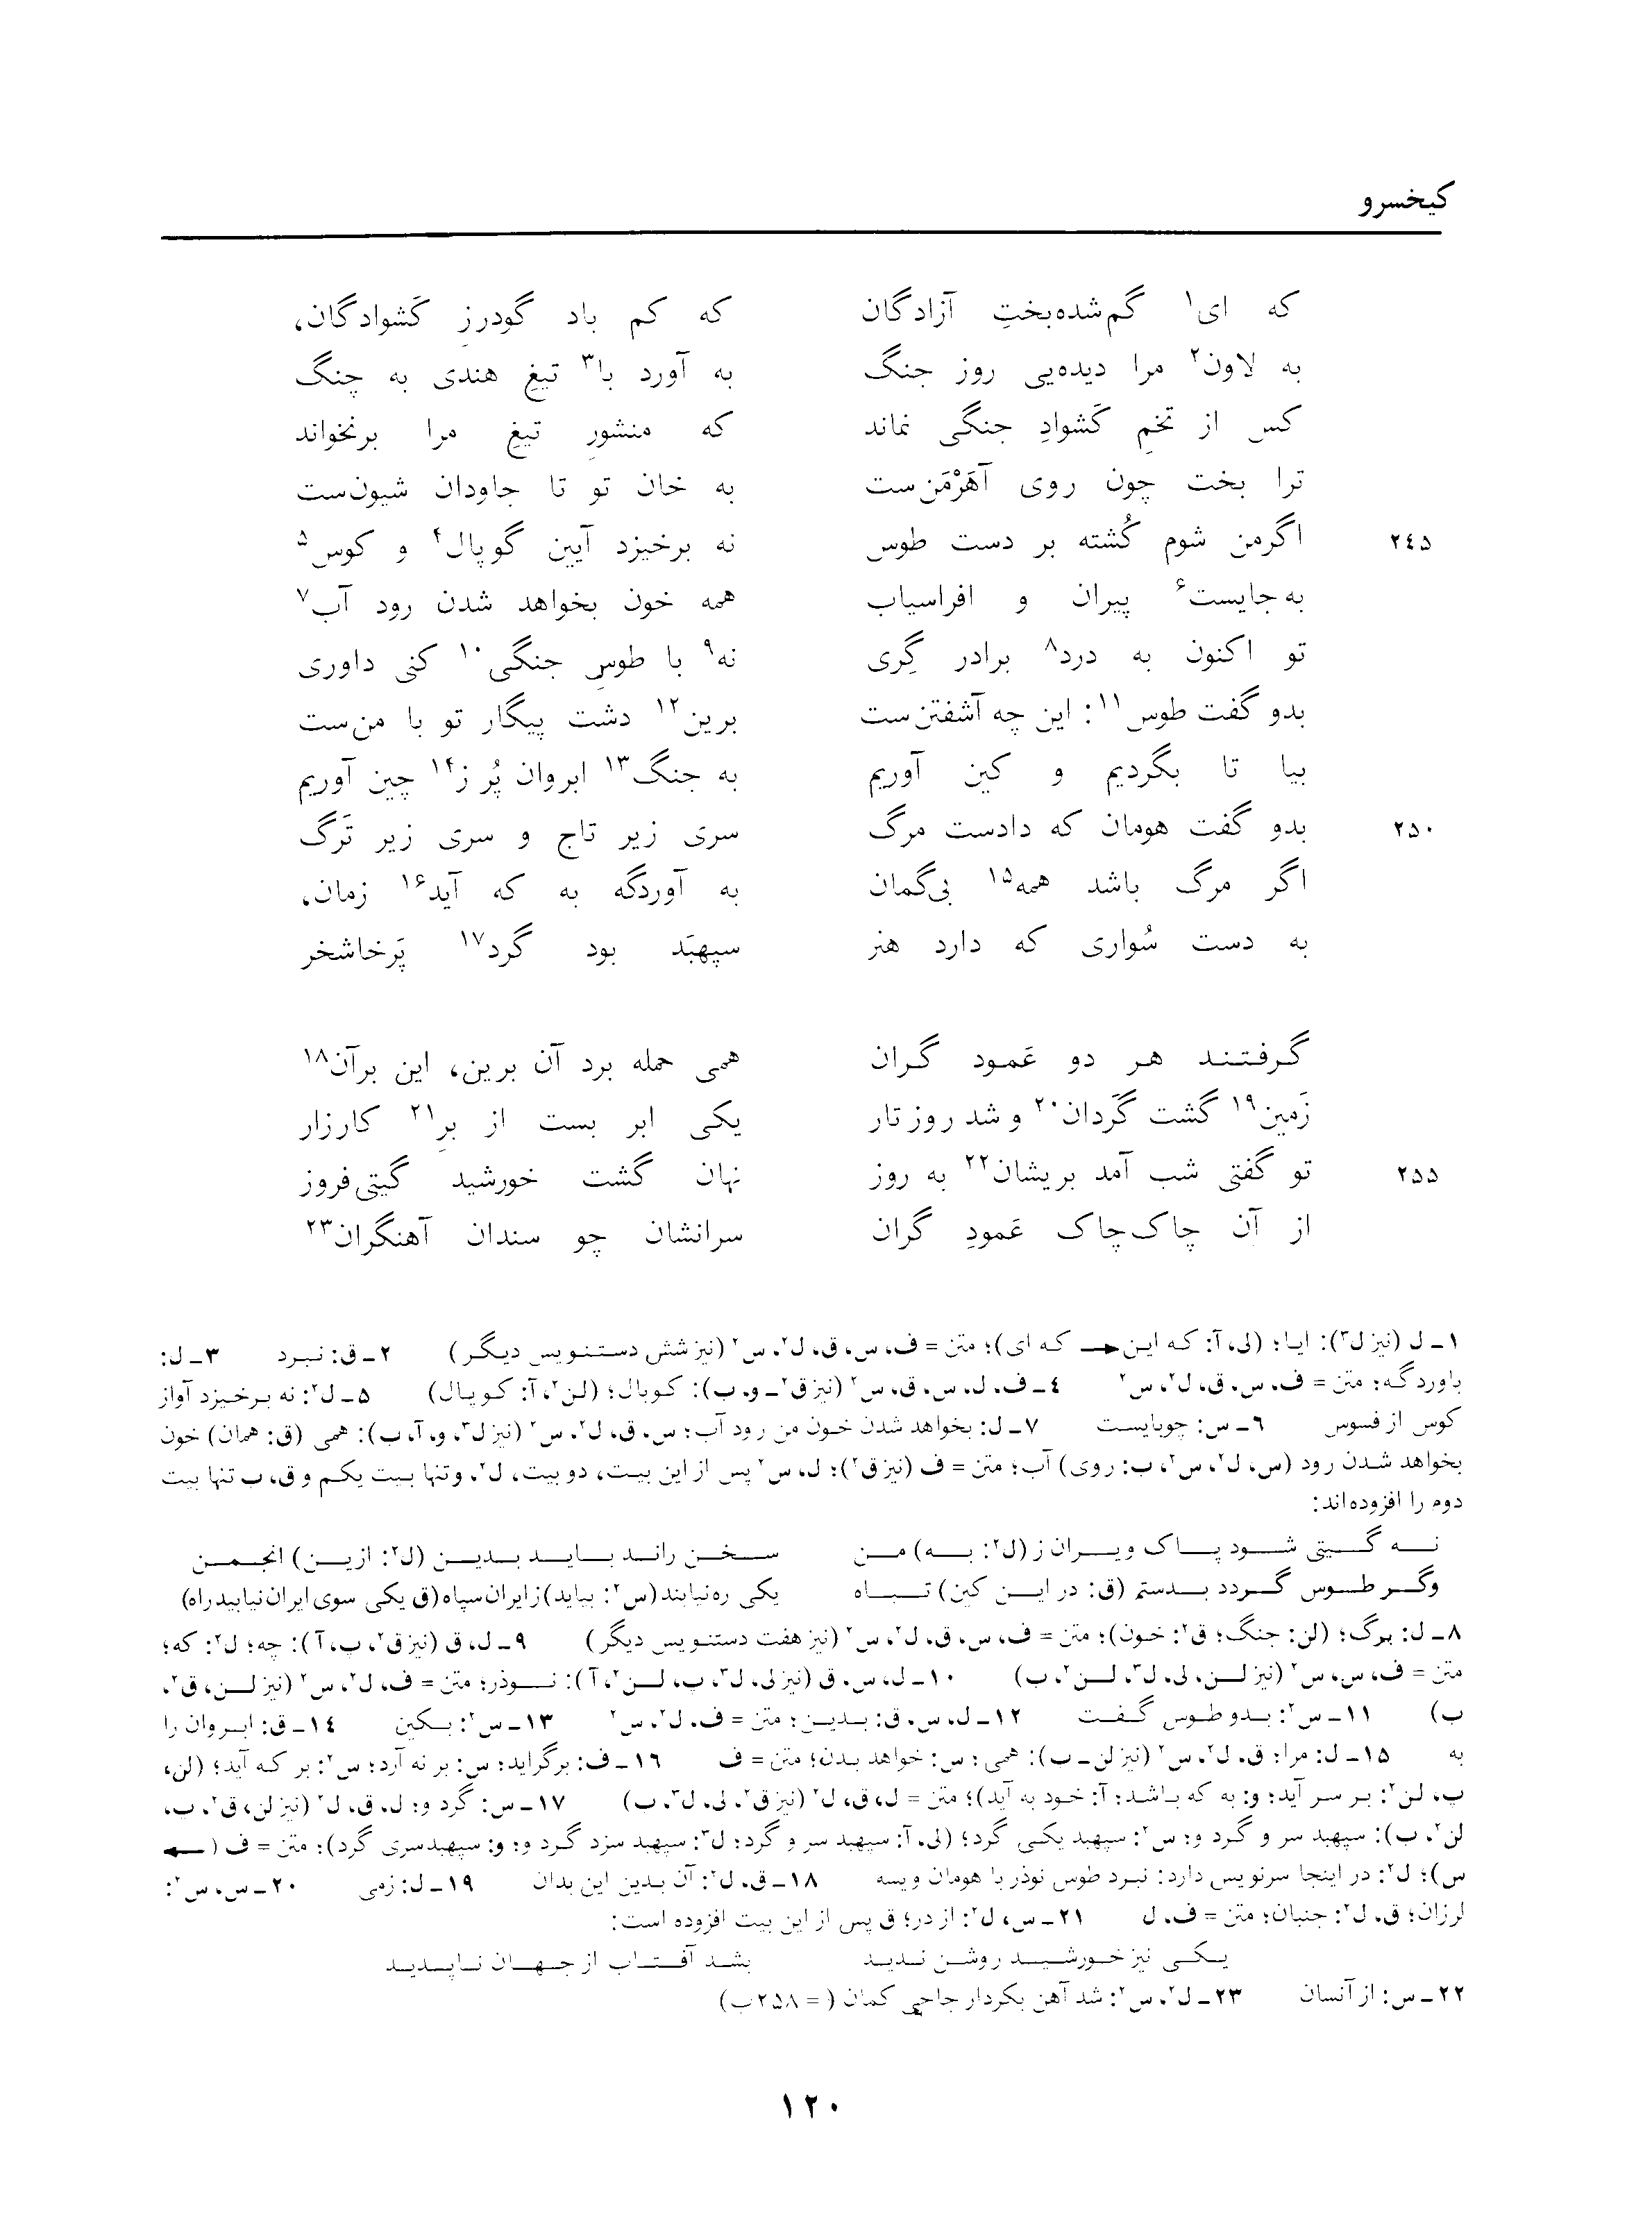 کیخسرو
که ای۱ گم‌شده‌بختِ آزادگان که کم باد گودرزِ کَشوادگان،
به لاون۲ مرا دیده‌یی روز جنگ به آورد با۳ تیغِ هندی به چنگ
کس از تخمِ کَشوادِ جنگی نماند که منشورِ تیغِ مرا برنخواند
ترا بخت چون روی آهَرْمَن‌ست به خان تو تا جاودان شیون‌ست
۲٤۵ اگرمن شوم کُشته بر دست طوس نه برخیزد آیین گوپال۴ و کوس۵
به جایست۶ پیران و افراسیاب همه خون بخواهد شدن رود آب۷
تو اکنون به درد۸ برادر گِری نه۹ با طوسِ جنگی۱۰ کنی داوری
بدو گفت طوس۱۱: این چه آشفتن‌ست برین۱۲ دشت پیگار تو با من‌ست
بیا تا بگردیم و کین آوریم به جنگ۱۳ ابروان پُر ز۱۴ چین آوریم
۲۵۰ بدو گفت هومان که دادست مرگ سری زیر تاج و سری زیر تَرگ
اگر مرگ باشد همه۱۵ بی‌گمان به آوردگه به که آید۱۶ زمان،
به دست سُواری که دارد هنر سپهبَد بود گرد۱۷ پَرخاشخر
گرفتند هر دو عَمود گران همی حمله برد آن برین، این برآن۱۸
زَمین۱۹ گشت گَردان۲۰ و شد روز تار یکی ابر بست از برِ۲۱ کارزار
۲۵۵ تو گفتی شب آمد بریشان۲۲ به روز نهان گشت خورشید گیتی‌فروز
از آن چاک‌چاک عَمودِ گران سرانشان چو سندان آهنگران۲۳
۱ـ ل (نیز ل۳): ایا؛ (لی، آ: که این ← که ای)؛ متن = ف، س، ق، ل۲، س۲ (نیز شش دستنویس دیگر) ۲ـ ق: نبرد ۳ـ ل:
باوردگه؛ متن = ف، س، ق، ل۲، س۲ ٤ـ ف، ل، س، ق، س۲ (نیز ق۲ ـ و، ب): کوبال؛ (لن۲، آ: کوپال) ۵ـ ل۲: نه برخیزد آواز
کوس از فسوس ٦ـ س: چوبایست ۷ـ ل: بخواهد شدن خون من رود آب؛ س، ق، ل۲، س۲ (نیز ل۳، و، آ، ب): همی (ق: همان) خون
بخواهد شدن رود (س، ل۲، س۲، ب: روی) آب؛ متن = ف (نیز ق۲)؛ ل، س۲ پس از این بیت، دو بیت، ل۲، و تنها بیت یکم و ق، ب تنها بیت
دوم را افزوده‌اند:
نه گیتی شود پاک ویران ز (ل۲: به) من سخن راند باید بدین (ل۲: ازین) انجمن
وگر طوس گردد بدستم (ق: در این کین) تباه یکی ره نیابند (س۲: بیاید) ز ایران سپاه (ق یکی سوی ایران نیابید راه)
۸ـ ل: برگ؛ (لن: جنگ؛ ق۲: خون)؛ متن = ف، س، ق، ل۲، س۲ (نیز هفت دستنویس دیگر) ۹ـ ل، ق (نیز ق۲، ب، آ): چه؛ ل۲: که؛
متن = ف، س، س۲ (نیز لن، لی، ل۳، لن۲، ب) ۱۰ـ ل، س، ق (نیز لی، ل۳، پ، لن۲، آ): نوذر؛ متن = ف، ل۲، س۲ (نیز لن، ق۲،
ب) ۱۱ـ س۲: بدو طوس گفت ۱۲ـ ل، س، ق: بدین؛ متن = ف، ل۲، س۲ ۱۳ـ س۲: بکین ۱٤ـ ق: ابروان را
به ۱۵ـ ل: مرا؛ ق، ل۲، س۲ (نیز لن ـ ب): همی؛ س: خواهد بدن؛ متن = ف ۱٦ـ ف: برگراید؛ س: بر نه آرد؛ س۲: بر که آید؛ (لن،
پ، لن۲: بر سر آید؛ و: به که باشد؛ آ: خود به آید)؛ متن = ل، ق، ل۲ (نیز ق۲، لی، ل۳، ب) ۱۷ـ س: گرد و؛ ل، ق، ل۲ (نیز لن، ق۲، پ،
لن۲، ب): سپهبد سر و گرد و؛ س۲: سپهبد یکی گرد؛ (لی، آ: سپهبد سر و گرد؛ ل۳: سپهبد سزد گرد و؛ و: سپهبد سری گرد)؛ متن = ف (←
س)؛ ل۲: در اینجا سرنویس دارد: نبرد طوس نوذر با هومان ویسه ۱۸ـ ق، ل۲: آن بدین این بدان ۱۹ـ ل: زمی ۲۰ـ س، س۲:
لرزان؛ ق، ل۲: جنبان؛ متن = ف، ل ۲۱ـ س، ل۲: از در؛ ق پس از این بیت افزوده است:
یکی نیز خورشید روشن ندید بشد آفتاب از جهان ناپدید
۲۲ـ س: از آنسان ۲۳ـ ل۲، س۲: شد آهن بکردار چاچی کمان (= ۲۵۸ب)
۱۲۰